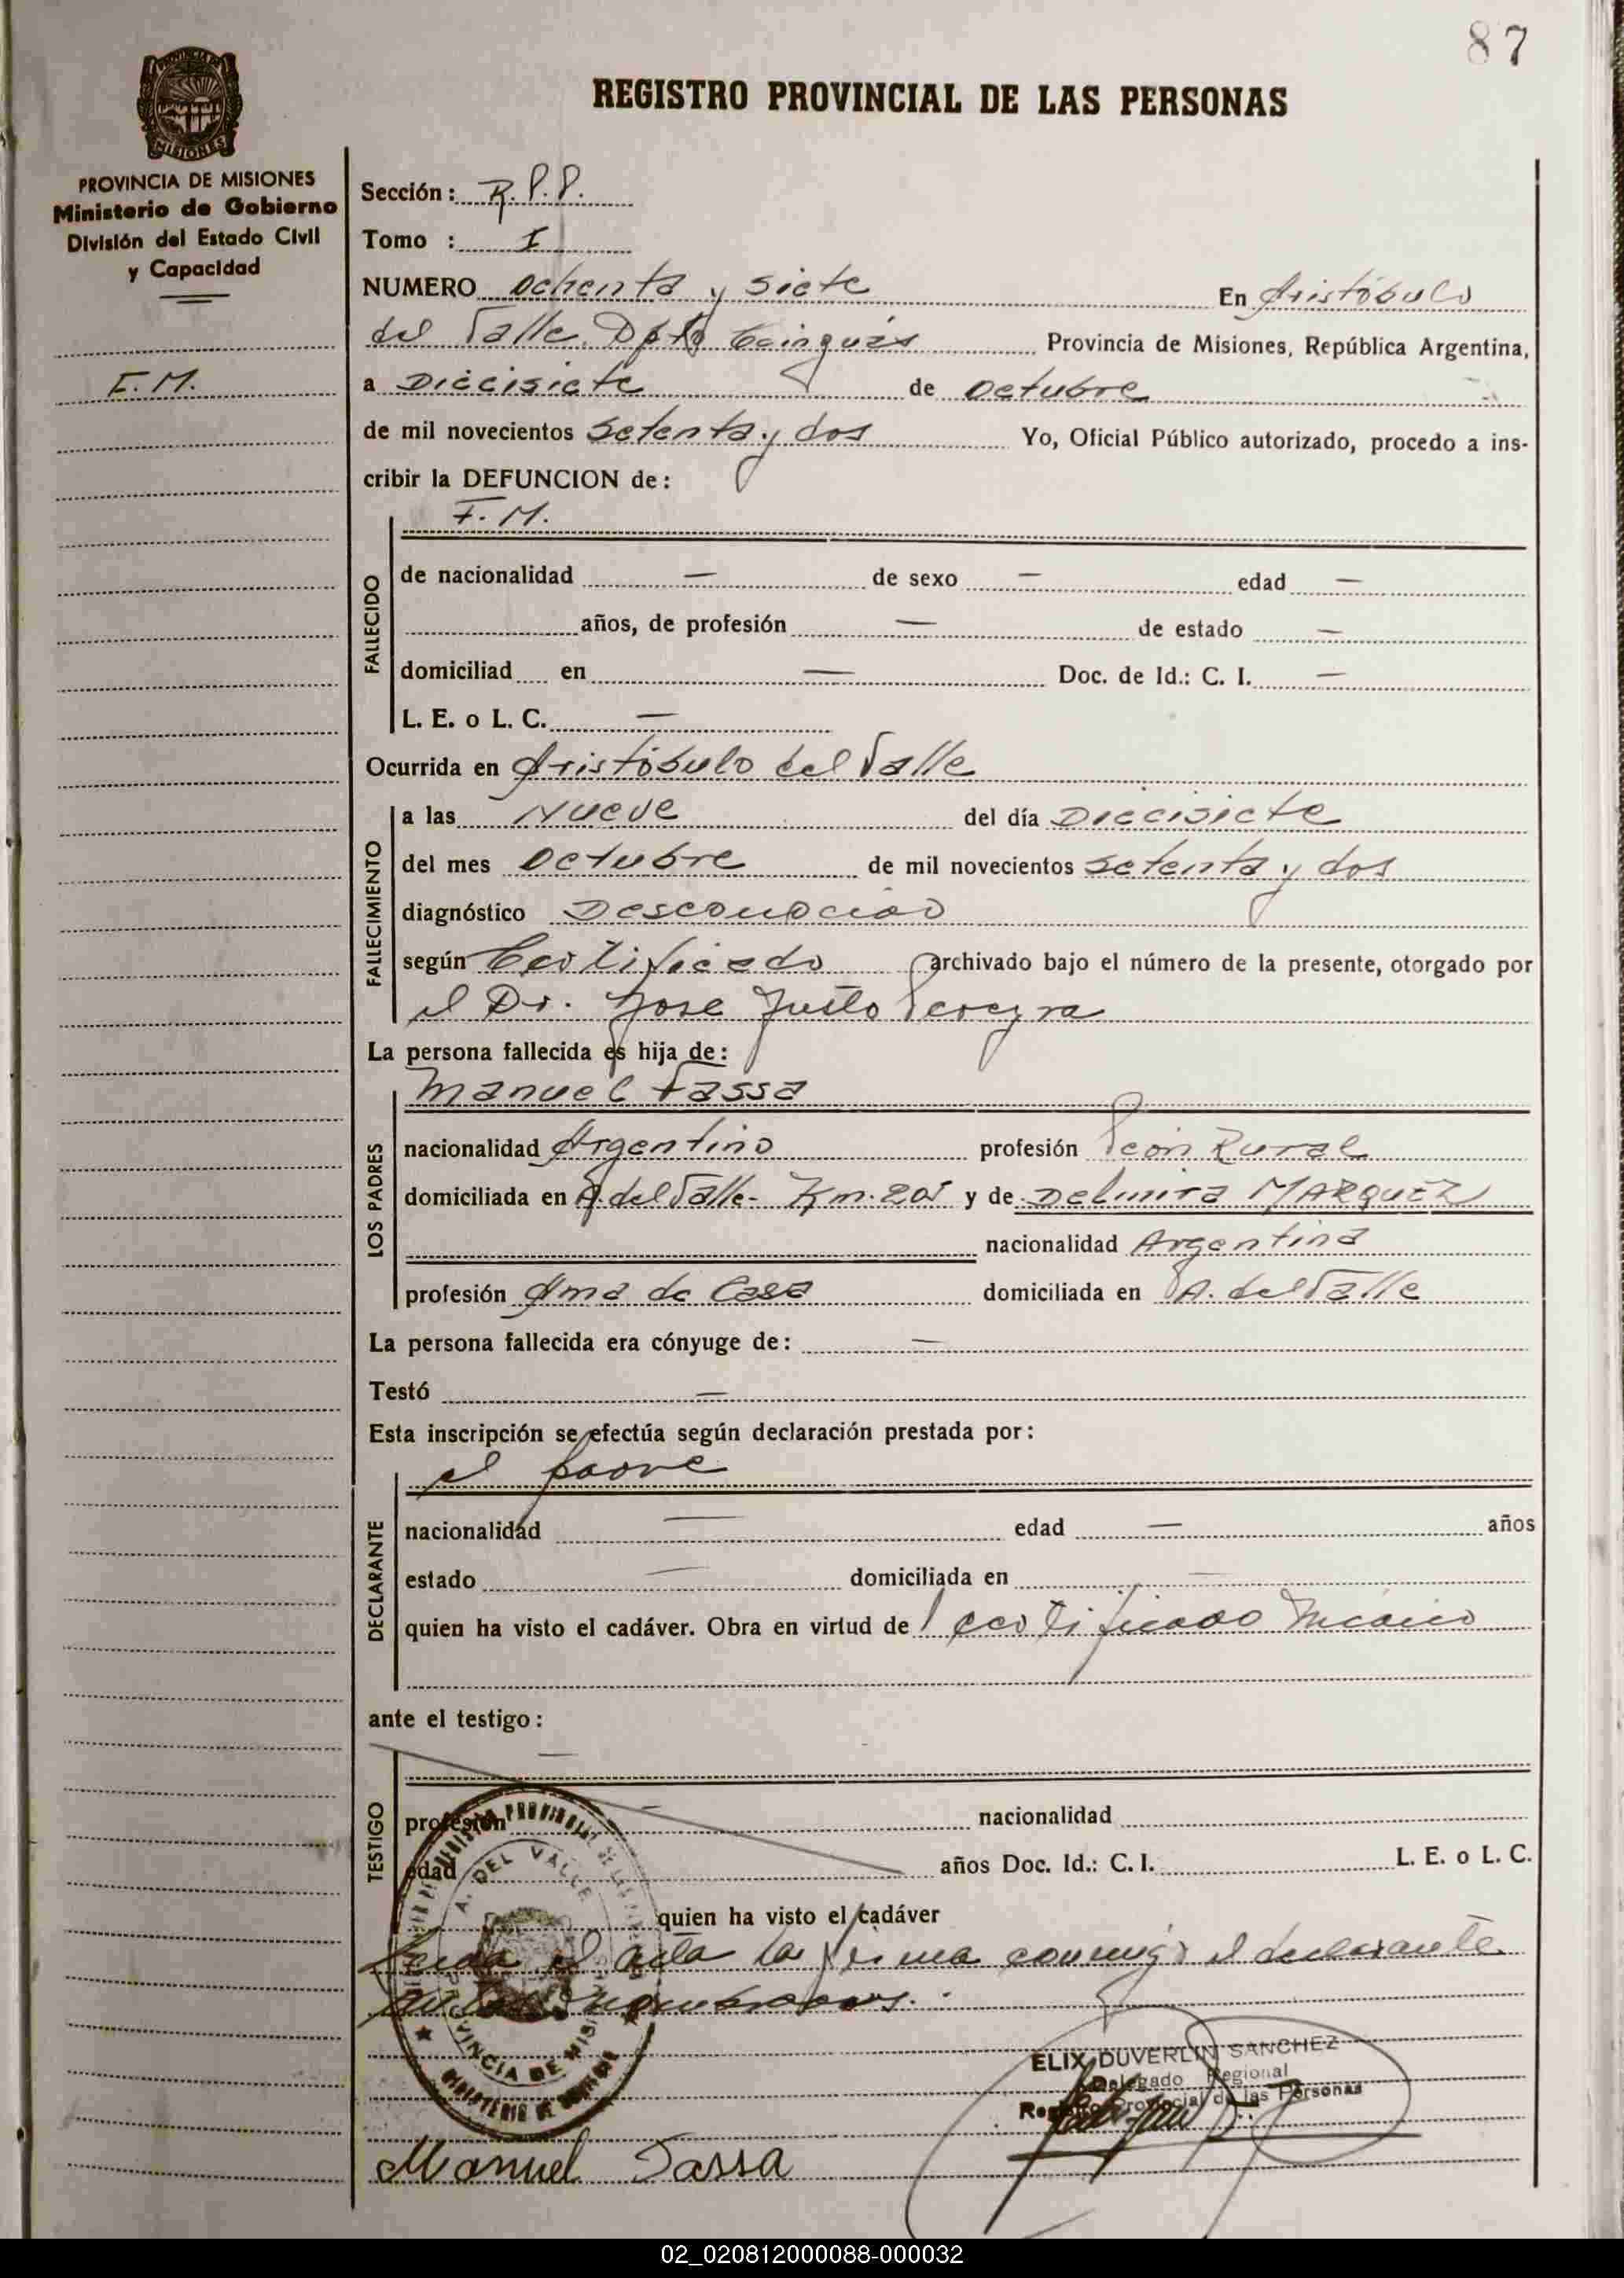 87
REGISTRO PROVINCIAL DE LAS PERSONAS
MISIONES
PROVINCIA DE MISIONES
Ministerio de Gobierno
División del Estado Civil
y Capacidad
F.M.
Sección: R.P.P.
Tomo : I
NUMERO Ochenta y Siete En Aristóbulo
del Valle. Dpto Cainguás Provincia de Misiones, República Argentina,
a Diecisiete de Octubre
de mil novecientos Setenta y dos Yo, Oficial Público autorizado, procedo a ins-
cribir la DEFUNCION de:
F.M.
FALLECIDO
de nacionalidad — de sexo — edad —
años, de profesión — de estado —
domiciliad en — Doc. de Id.: C. I. —
L. E. o L. C. —
Ocurrida en Aristóbulo del Valle
FALLECIMIENTO
a las Nueve del día Diecisiete
del mes Octubre de mil novecientos Setenta y dos
diagnóstico Desconocido
según Certificado archivado bajo el número de la presente, otorgado por
el Dr. Jose Justo Pereyra
La persona fallecida es hija de:
LOS PADRES
Manuel Tassa
nacionalidad Argentino profesión Peón Rural
domiciliada en A. del Valle- Km. 205 y de Delmira MARQUEZ
nacionalidad Argentina
profesión Ama de Casa domiciliada en A. del Valle
La persona fallecida era cónyuge de: —
Testó —
Esta inscripción se efectúa según declaración prestada por:
DECLARANTE
el padre
nacionalidad — edad — años
estado — domiciliada en —
quien ha visto el cadáver. Obra en virtud de certificado Médico
ante el testigo:
—
TESTIGO
profesión — nacionalidad
edad años Doc. Id.: C. I. L. E. o L. C.
quien ha visto el cadáver
el acta la firma conmigo el declarante
A. DEL VALLE
PROVINCIA DE MISIONES
MINISTERIO DE GOBIERNO
ELIX DUVERLIN SANCHEZ
Delegado Regional
Registro Provincial de las Personas
Manuel Tassa
02_020812000088-000032